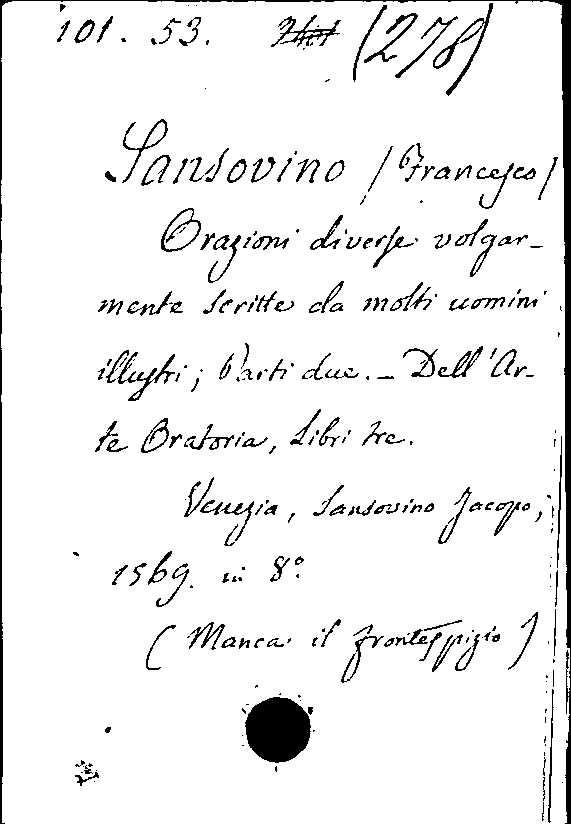 101. 53. (278)
Sansovino (Francesco)
Orazioni diverse volgar-
mente scritte da molti uomini
illustri; Parti due. - Dell'Ar-
te Oratoria, Libri tre.
Venezia, Sansovino Jacopo,
1569. in 8º.
(Manca il frontespizio)